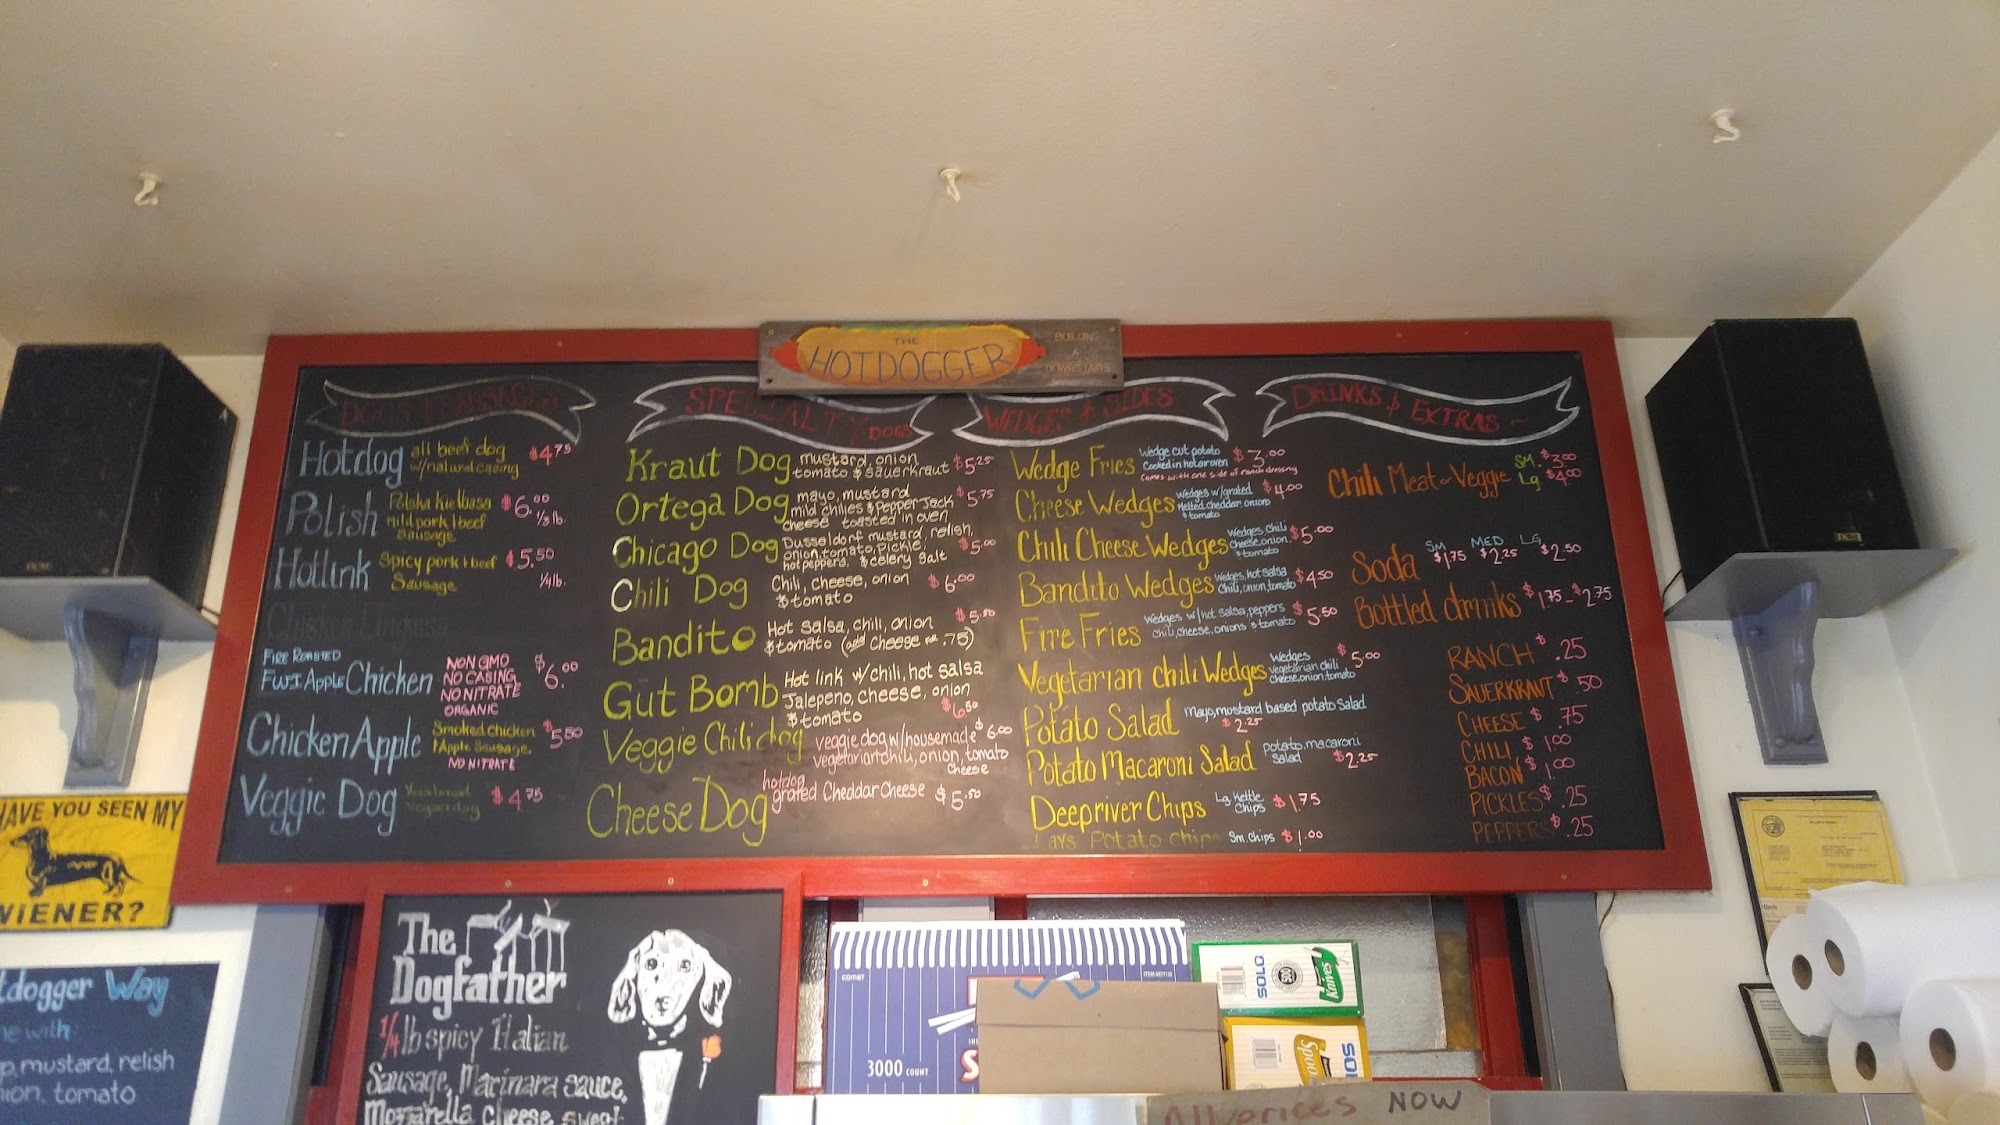 THE
HOTDOGGER
BUILDING
A
DOWNSTAIRS
DOGS & SAUSAGES
Hotdog all beef dog $4.75
w/natural casing
Polish Polska kielbasa $6.00
mild pork & beef 1/3 lb.
Sausage
Hotlink Spicy pork & beef $5.50
Sausage 1/4 lb.
Chicken Linguisa
FIRE ROASTED
FUJI Apple Chicken NON GMO $6.00
NO CASING
NO NITRATE
ORGANIC
Chicken Apple Smoked chicken $5.50
& Apple Sausage
NO NITRATE
Veggie Dog $4.75
SPECIALTY DOGS
Kraut Dog mustard, onion
tomato & sauerkraut $5.25
Ortega Dog mayo, mustard $5.75
mild chilies & Pepper Jack
cheese toasted in oven
Chicago Dog Dusseldorf mustard, relish,
onion, tomato, pickle, $5.00
hot peppers, & celery salt
Chili Dog Chili, cheese, onion $6.00
& tomato
Bandito Hot salsa, chili, onion $5.50
& tomato (add cheese .75)
Gut Bomb Hot link w/chili, hot salsa
Jalepeno, cheese, onion
& tomato $6.50
Veggie Chili dog veggie dog w/housemade $6.00
vegetarian chili, onion, tomato
cheese
Cheese Dog hotdog
grated Cheddar Cheese $5.50
WEDGES & SIDES
Wedge Fries Wedge cut potato $3.00
Cooked in hot air oven
Comes with one side of ranch dressing
Cheese Wedges Wedges w/grated $4.00
Melted cheddar, onions
& tomato
Chili Cheese Wedges Wedges, chili $5.00
cheese, onion,
& tomato
Bandito Wedges Wedges, hot salsa $4.50
chili, onion, tomato
Fire Fries Wedges w/hot salsa, peppers $5.50
chili, cheese, onions & tomato
Vegetarian chili Wedges Wedges $5.00
vegetarian chili
cheese, onion, tomato
Potato Salad Mayo, mustard based potato salad
$2.25
Potato Macaroni Salad potato, macaroni
salad $2.25
Deepriver Chips Lg kettle $1.75
Chips
Lays Potato chips Sm. Chips $1.00
DRINKS & EXTRAS
Chili Meat or Veggie SM. $3.00
Lg $4.00
SM MED LG
Soda $1.75 $2.25 $2.50
Bottled drinks $1.75-$2.75
RANCH $.25
SAUERKRAUT $.50
CHEESE $.75
CHILI $1.00
BACON $1.00
PICKLES $.25
PEPPERS $.25
HAVE YOU SEEN MY
WIENER?
tdogger Way
me with:
p, mustard, relish
nion, tomato
The
Dogfather
1/4 lb spicy Italian
Sausage, Marinara sauce,
Mozzarella cheese, sweet
COMET
ITEM
3000 COUNT
SOLO
500
Knives
SOLO
Spoons
All prices NOW